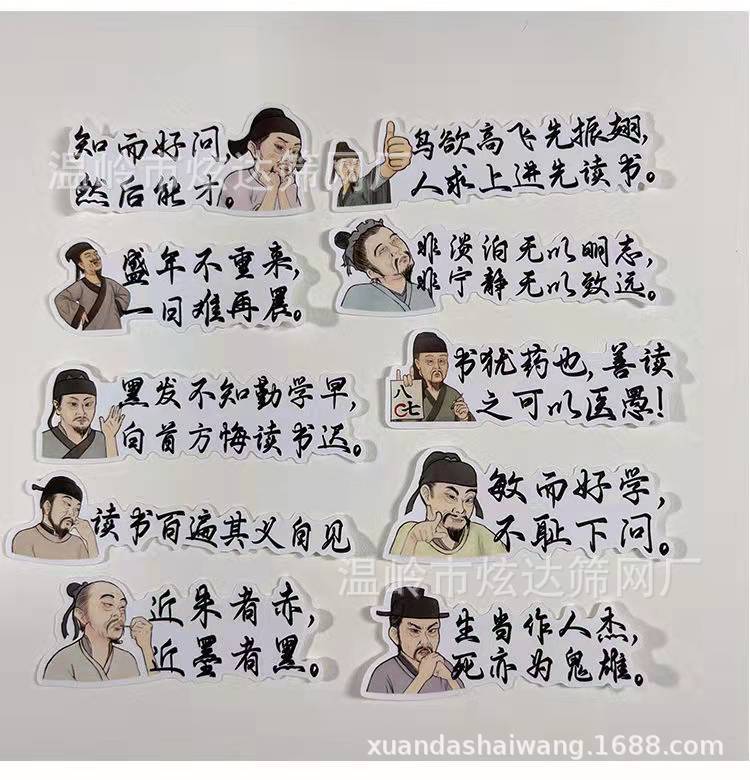 知而好问,
然后能才。
鸟欲高飞先振翅,
人求上进先读书。
盛年不重来,
一日难再晨。
非溃泊无以明志,
非宁静无以致远。
黑发不知勤学早,
白首方悔读书迟。
书犹药也,善读
之可以医愚!
八七
读书百遍其义自见
敏而好学,
不耻下问。
近朱者赤,
近墨者黑。
生当作人杰,
死亦为鬼雄。
温岭市炫达筛网厂
温岭市炫达筛网厂
xuandashaiwang.1688.com